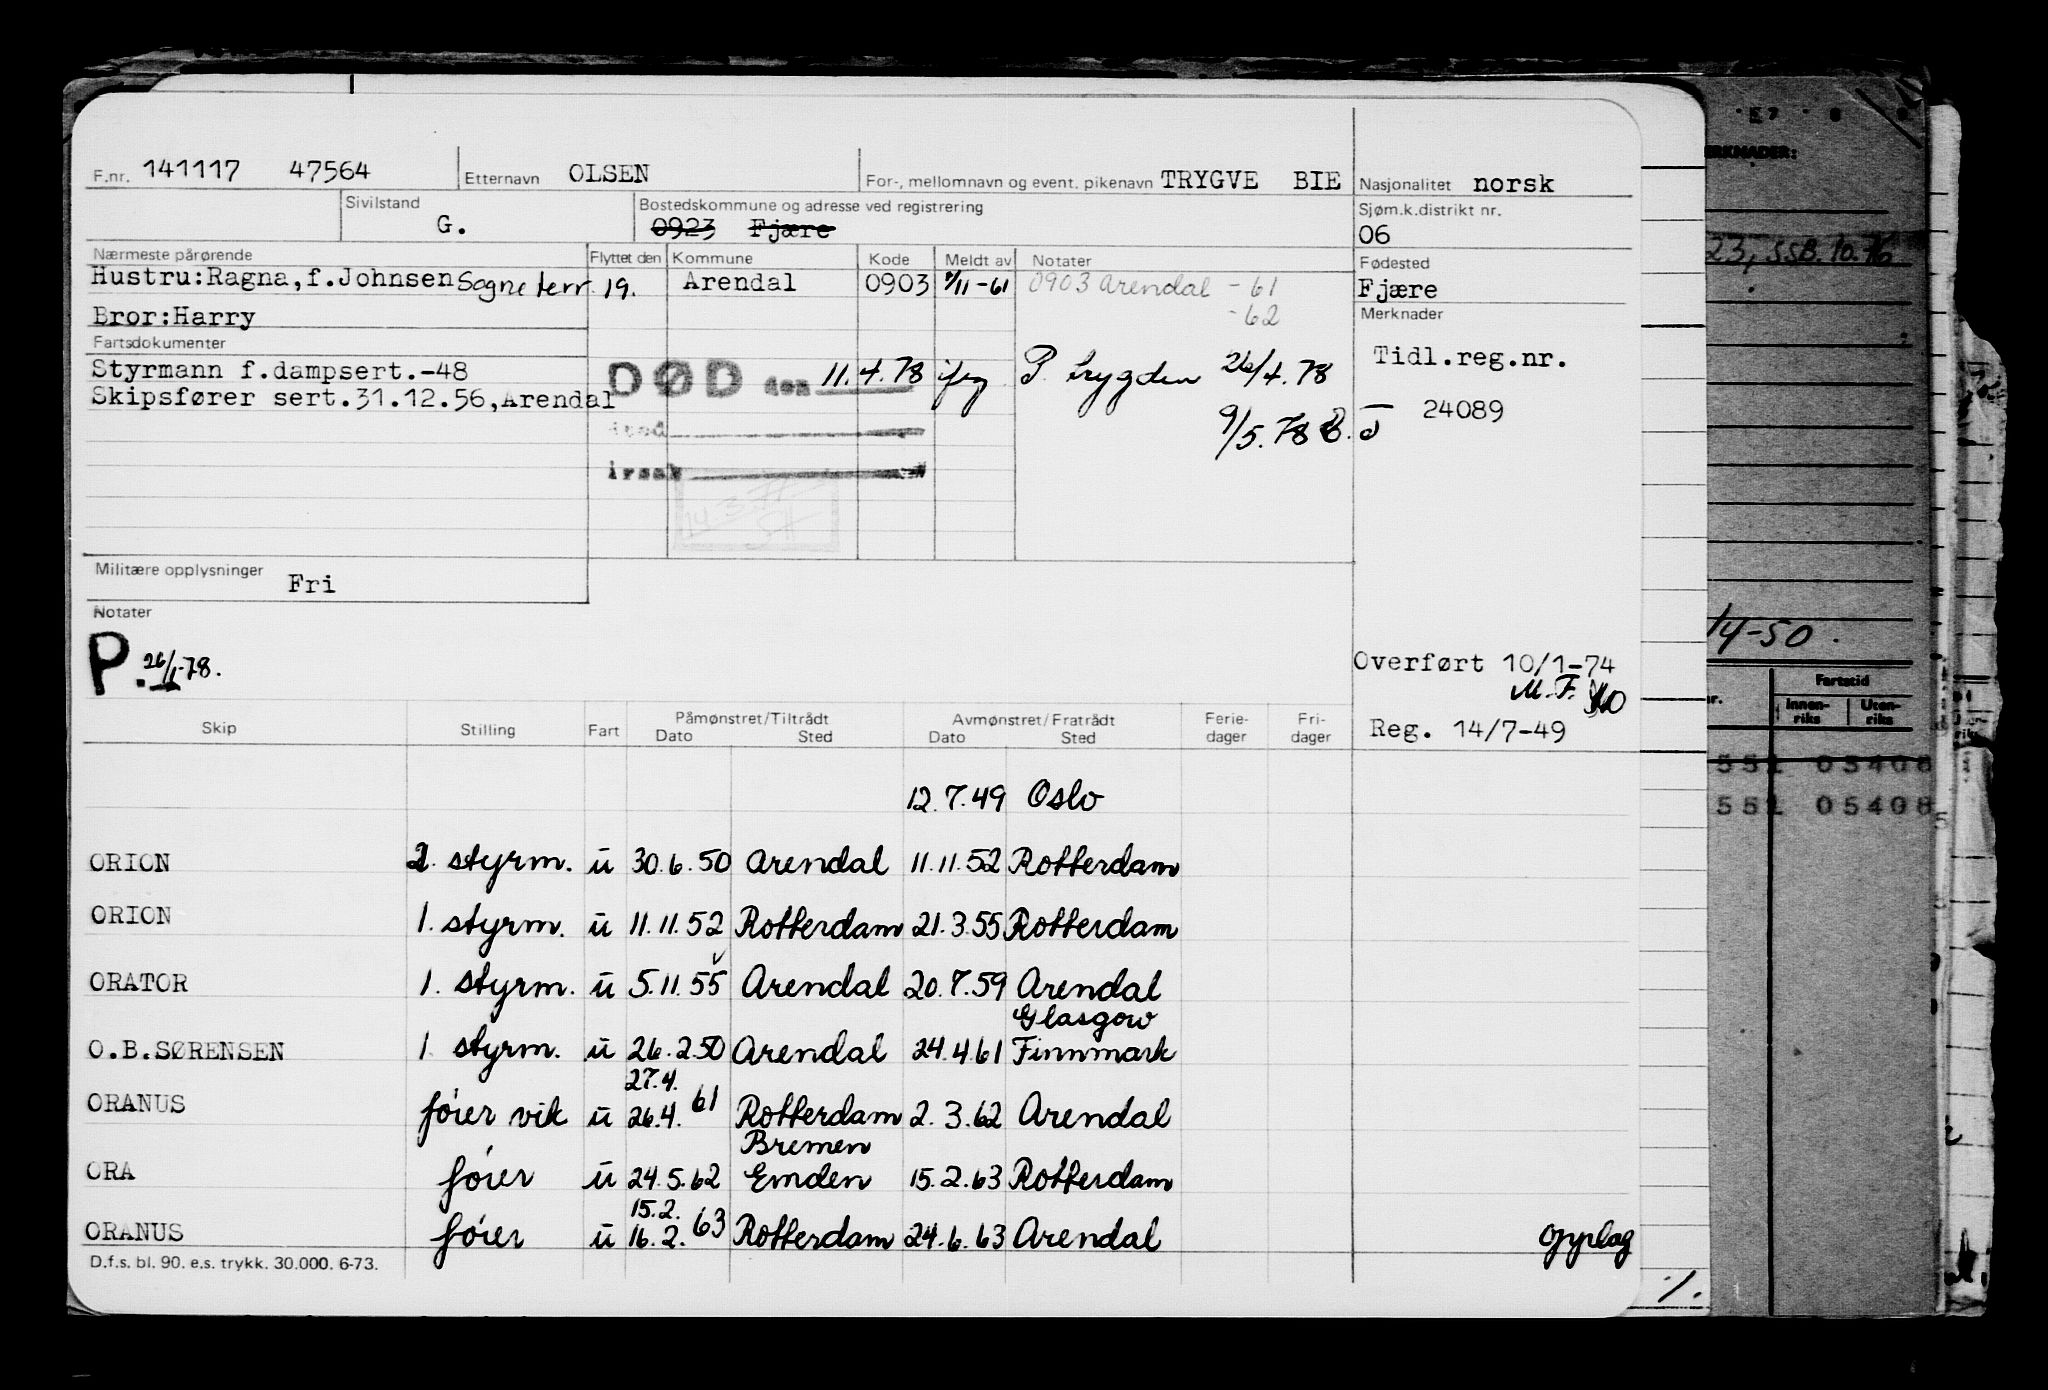 F.nr. 141117 47564 Etternavn OLSEN For-, mellomnavn og event. pikenavn TRYGVE BIE Nasjonalitet norsk
Sivilstand G. Bostedskommune og adresse ved registrering 0923 Fjære Sjøm.k.distrikt nr. 06
Nærmeste pårørende Flyttet den Kommune Kode Meldt av Notater Fødested
Hustru:Ragna,f.Johnsen Sogne terr. 19. Arendal 0903 /11-61 0903 Arendal -61 Fjære
-62
Bror:Harry Merknader
Fartsdokumenter
Styrmann f.dampsert.-48 DØD den 11.4.78 P. trygden 26/4.78 Tidl.reg.nr.
Skipsfører sert.31.12.56,Arendal 9/5.78 24089
Militære opplysninger Fri
Notater
P. 26/1-78. Overført 10/1-74
M.F.
Reg. 14/7-49
Skip Stilling Fart Påmønstret/Tiltrådt Avmønstret/Fratrådt Ferie- Fri-
Dato Sted Dato Sted dager dager
12.7.49 Oslo
ORION 2. styrm. u 30.6.50 Arendal 11.11.52 Rotterdam
ORION 1. styrm. u 11.11.52 Rotterdam 21.3.55 Rotterdam
ORATOR 1. styrm. u 5.11.55 Arendal 20.7.59 Arendal
Glasgow
O.B.SØRENSEN 1 styrm. u 26.2.50 Arendal 24.4.61 Finnmark
27.4.
ORANUS fóier vik u 26.4. 61 Rotterdam 2.3.62 Arendal
Bremen
ORA fóier u 24.5.62 Emden 15.2.63 Rotterdam
15.2.
ORANUS fóier u 16.2. 63 Rotterdam 24.6.63 Arendal Opplag
D.f.s. bl. 90. e.s. trykk. 30.000. 6-73.
23, SSB. 10.76
14-50.
Fartstid
Innen- Uten-
riks riks
551 05408
551 05408